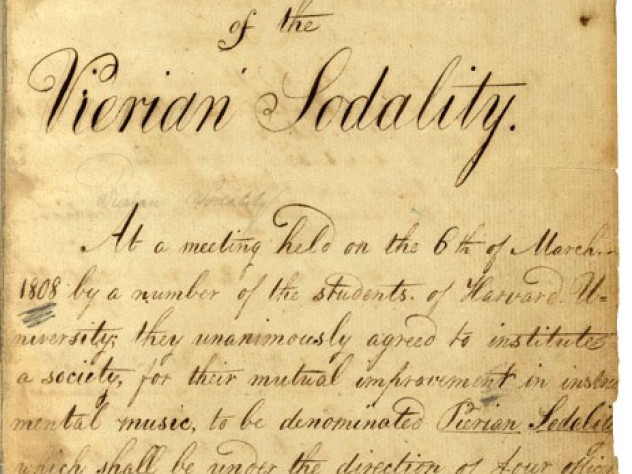 of the
Pierian Sodality.
Pierian Sodality
At a meeting held on the 6th of March
1808 by a number of the students of Harvard U-
niversity; they unanimously agreed to institute
a society, for their mutual improvement in instru
mental music, to be denominated Pierian Sodality
which shall be under the direction of four